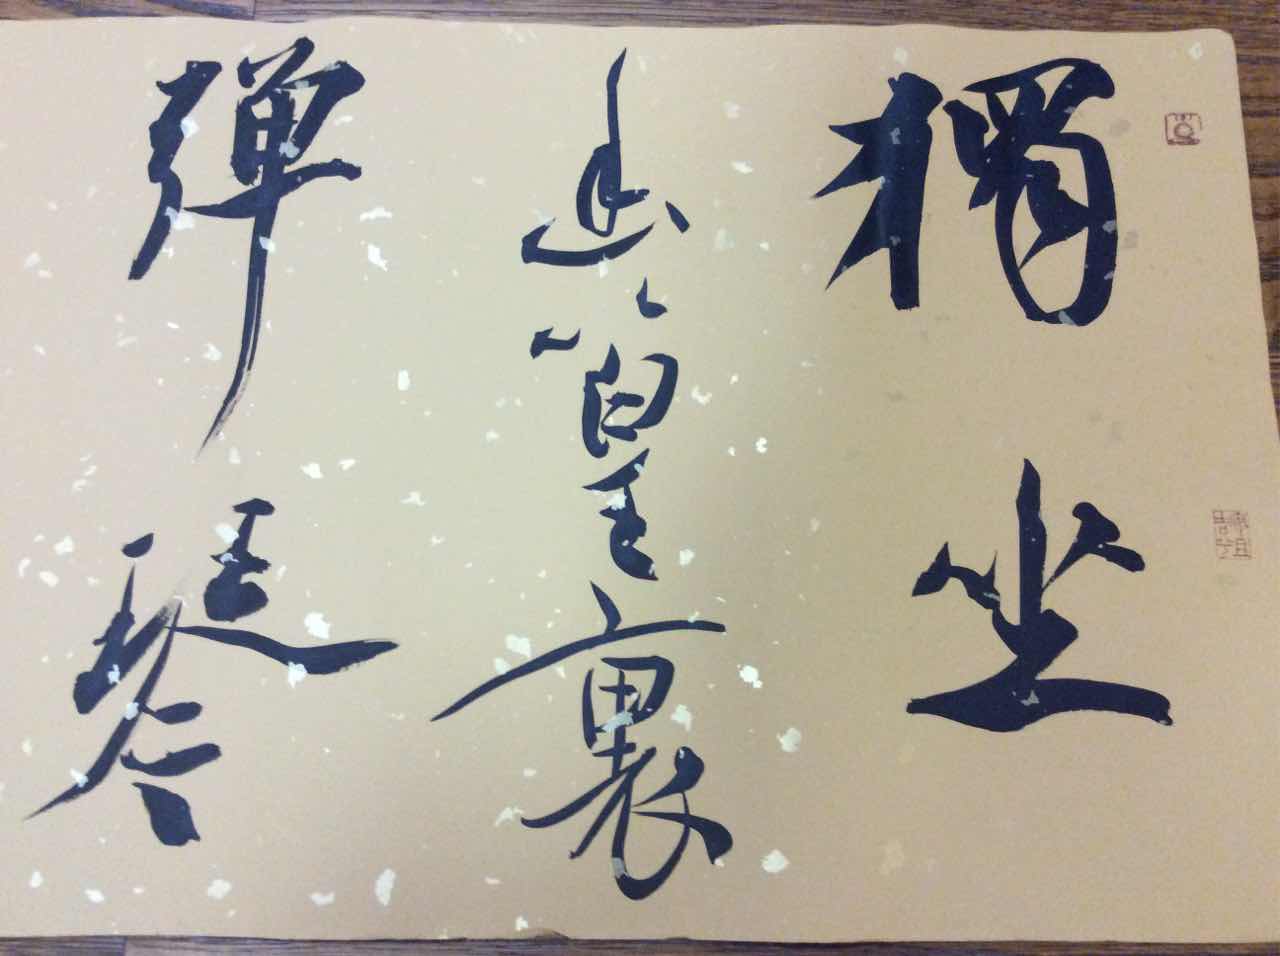 獨坐
幽篁裏
彈琴